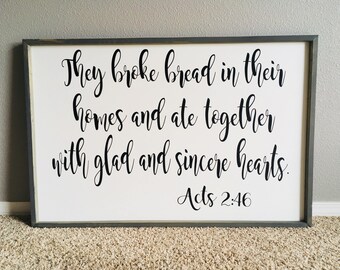 They broke bread in their
homes and ate together
with glad and sincere hearts.
Acts 2:46